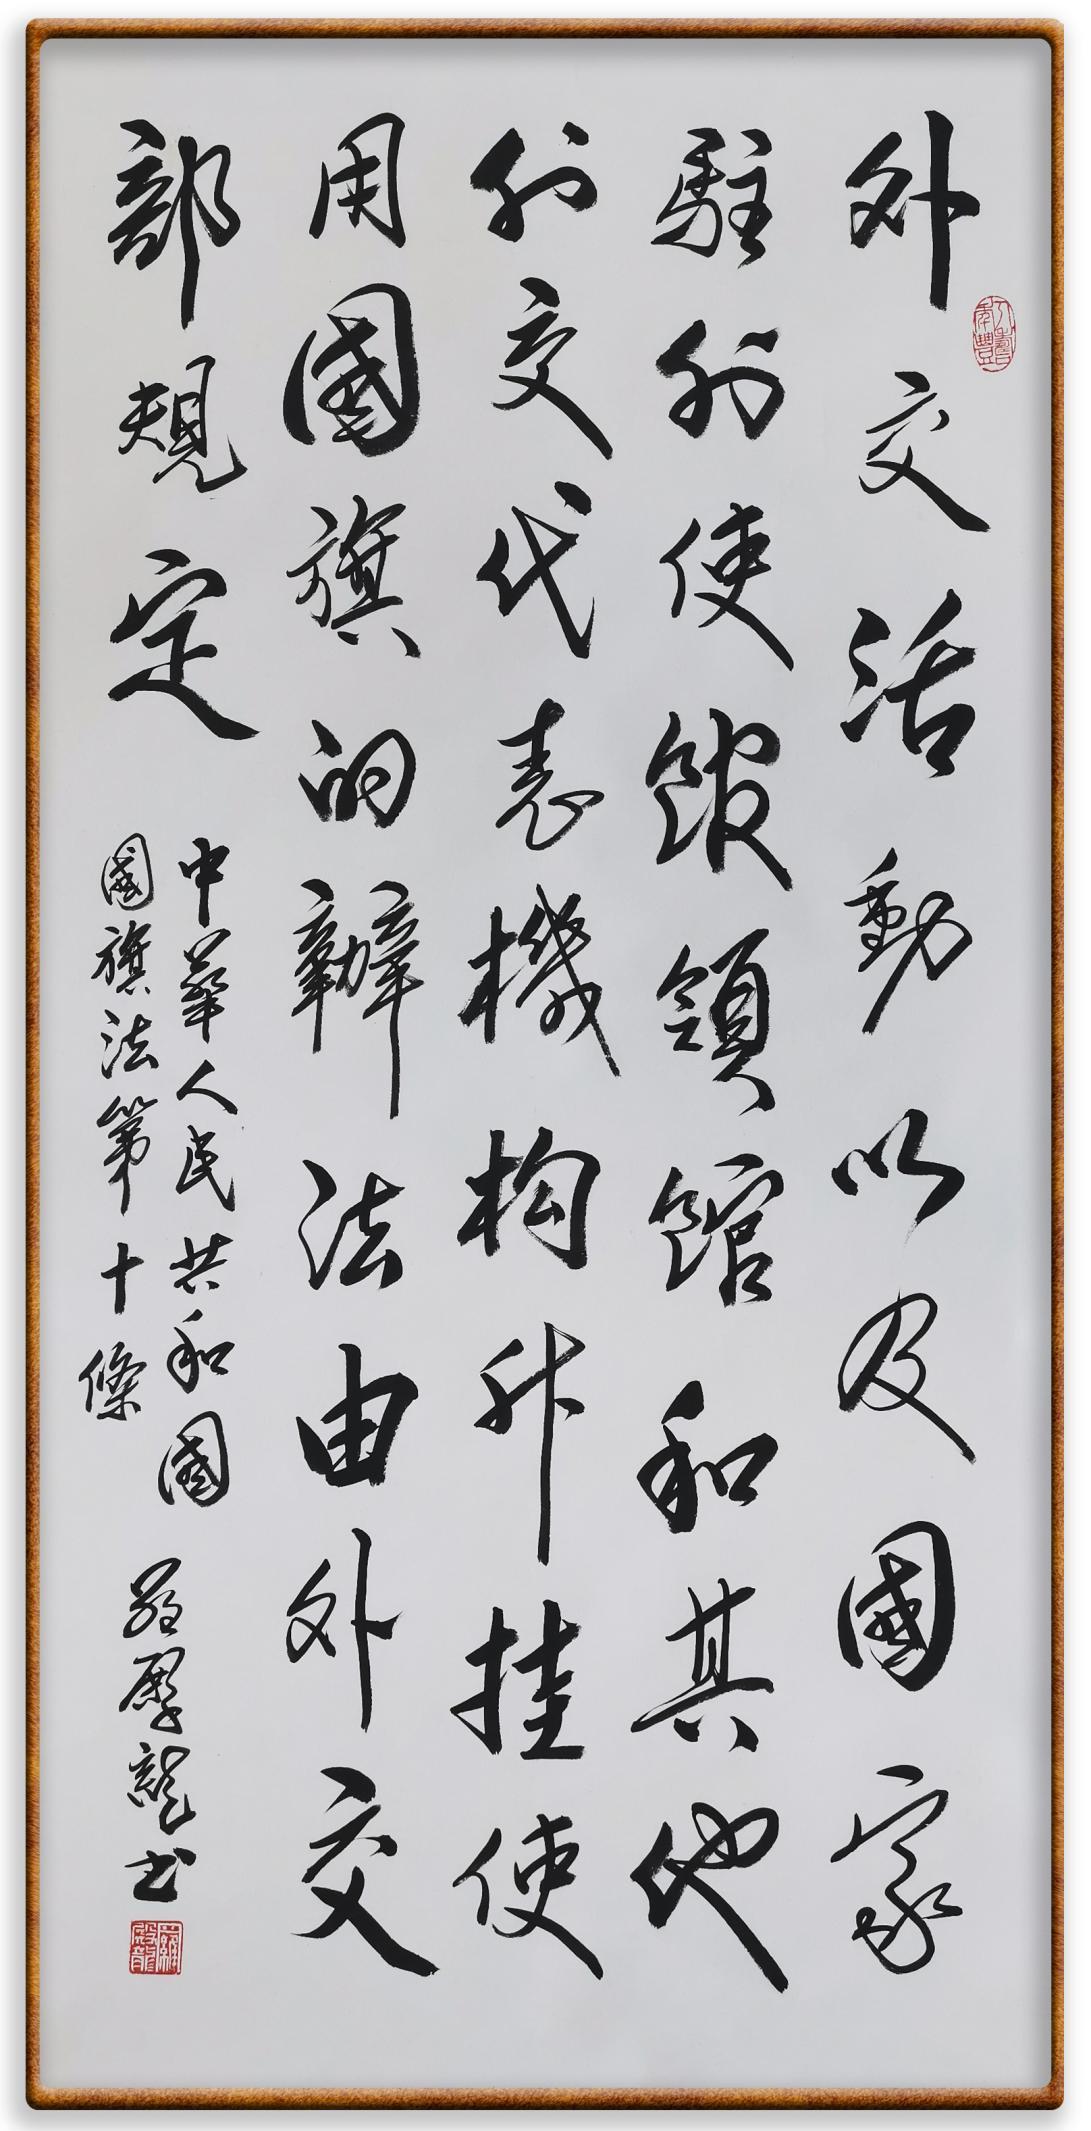 外交活動以及國家
駐外使館領館和其他
外交代表機构升挂使
用國旗的辦法由外交
部規定
中華人民共和國
國旗法第十條
羅殿龍书
羅殿龍